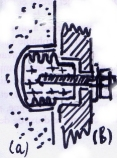 (a) (B)